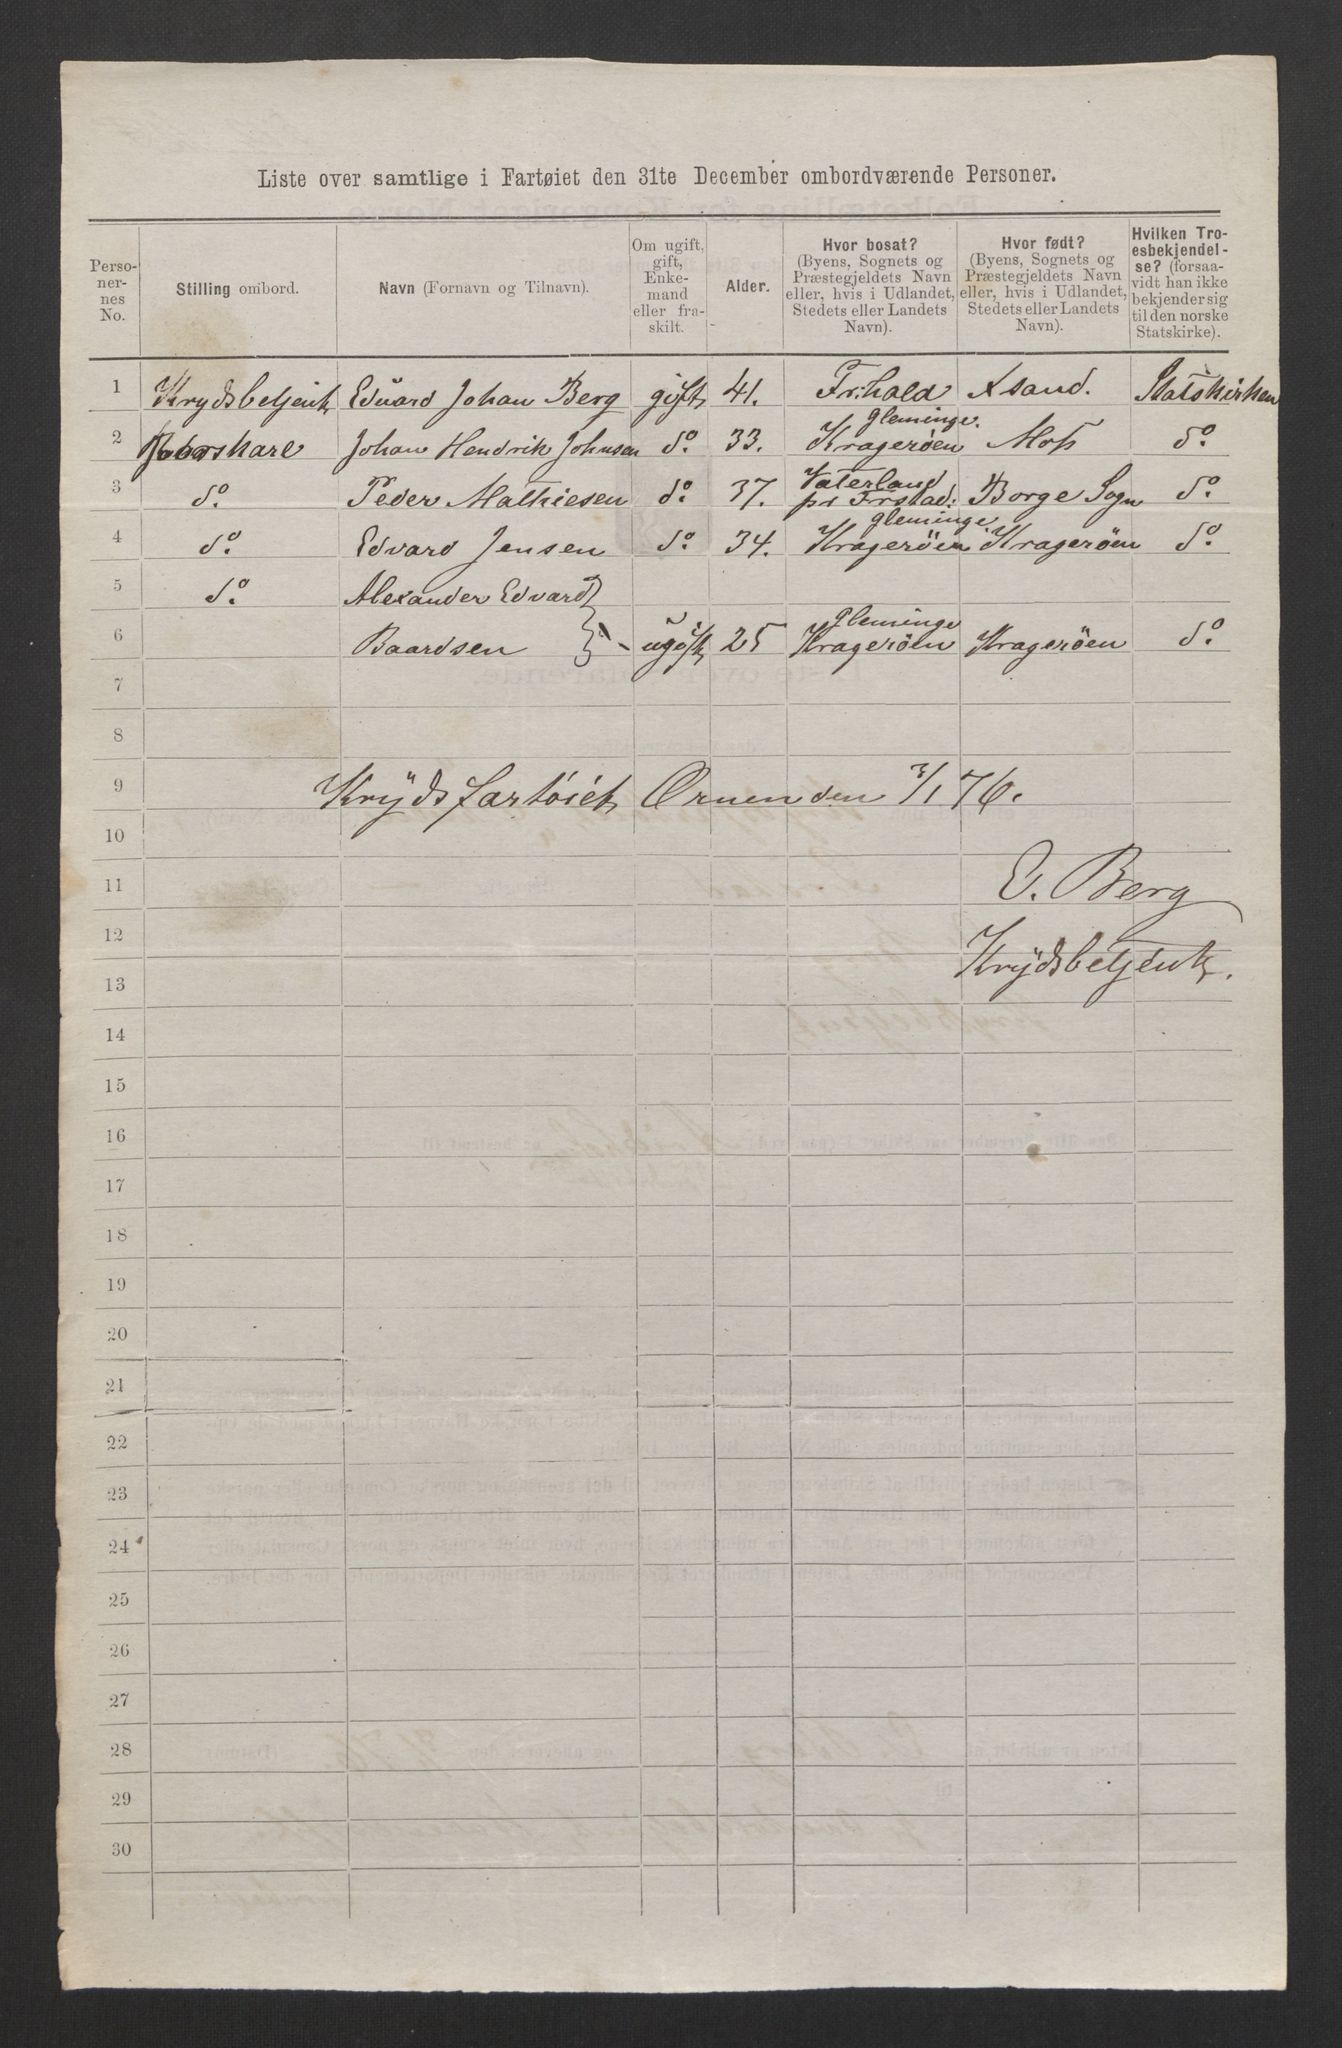 Liste over samtlige i Fartøiet den 31te December ombordværende Personer.
Personernes No. | Stilling ombord. | Navn (Fornavn og Tilnavn). | Om ugift, gift, Enkemand eller fraskilt. | Alder. | Hvor bosat? (Byens, Sognets og Præstegjeldets Navn eller, hvis i Udlandet, Stedets eller Landets Navn). | Hvor født? (Byens, Sognets og Præstegjeldets Navn eller, hvis i Udlandet, Stedets eller Landets Navn). | Hvilken Troesbekjendelse? (forsaavidt han ikke bekjender sig til den norske Statskirke).
1 Krydsbetjent Edüard Johan Berg gift 41. Fr.hald Asand. Statskirken
2 Johan Hendrik Johnsen do. 33. Gleminge. Kragerøen Moss do.
3 do. Peder Mathiesen do. 37. Vaterland pr Frstad. Borge Sogn do.
4 do. Edvard Jensen do. 34. Gleminge. Kragerøen Kragerøen do.
5 do. Alexander Edvard
6 Baardsen ugift 25 Gleminge Kragerøen Kragerøen do.
7
8
9 Krydsfartøiet Ørnen den 3/1 76.
10
11 E. Berg
12 Krydsbetjent.
13
14
15
16
17
18
19
20
21
22
23
24
25
26
27
28
29
30